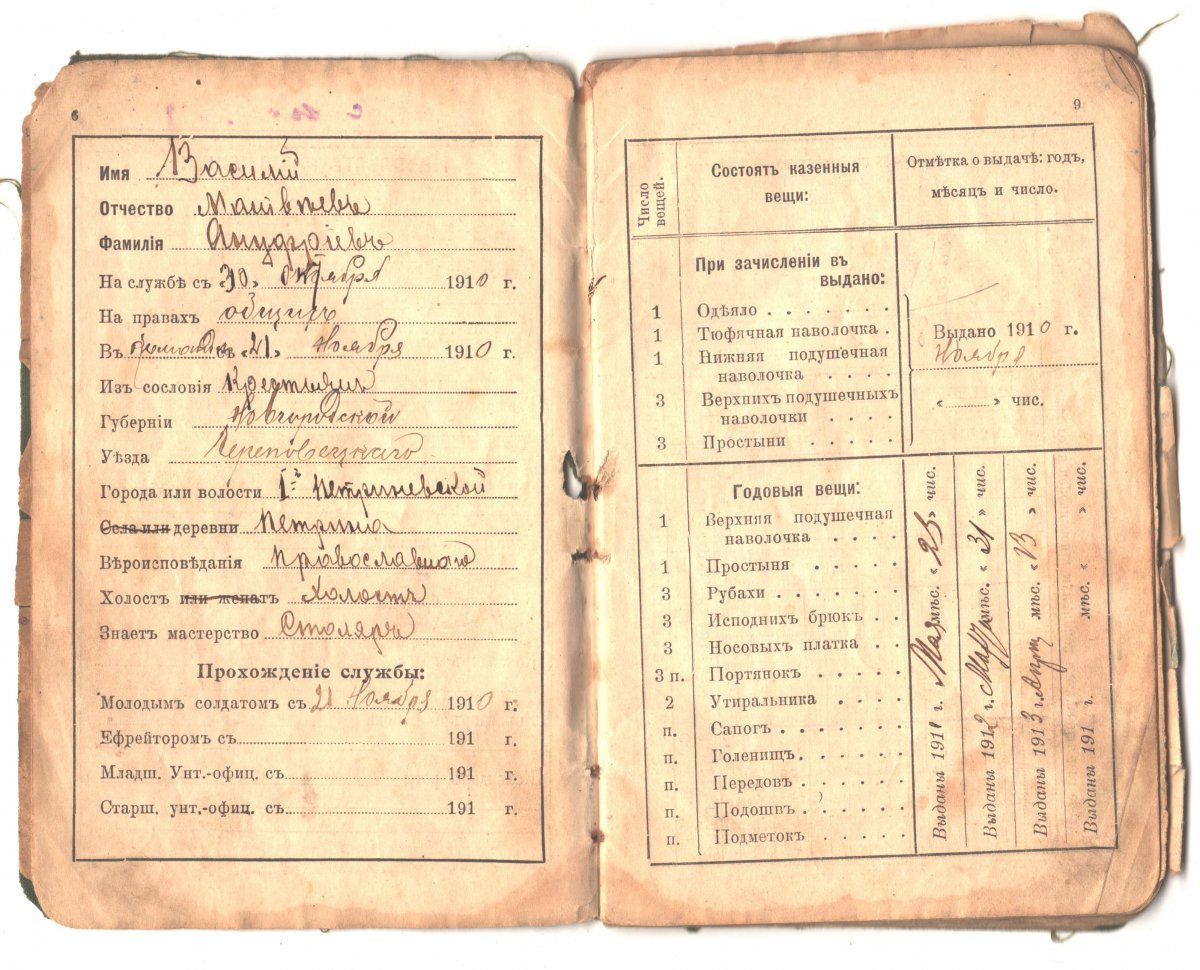 6
Имя Василій
Отчество Матвѣевъ
Фамилія
На службѣ съ «30» Октября 1910 г.
На правахъ общихъ
Въ съ «21» Ноября 1910 г.
Изъ сословія Крестьянъ
Губерніи Новгородской
Уѣзда Череповецкаго
Города или волости 1й Петриневской
Села или деревни Петрина
Вѣроисповѣданія Православнаго
Холостъ или женатъ Холостъ
Знаетъ мастерство Столяръ
Прохожденіе службы:
Молодымъ солдатомъ съ 21 Ноября 1910 г.
Ефрейторомъ съ 191 г.
Младш. Унт.-офиц. съ 191 г.
Старш. унт.-офиц. съ 191 г.
9
Число вещей.
Состоятъ казенныя
вещи:
Отмѣтка о выдачѣ: годъ,
мѣсяцъ и число.
При зачисленіи въ
выдано:
1 Одѣяло
1 Тюфячная наволочка
1 Нижняя подушечная
наволочка
3 Верхнихъ подушечныхъ
наволочки
3 Простыни
Выдано 1910 г.
Ноября
« » чис.
Годовыя вещи:
1 Верхняя подушечная
наволочка
1 Простыня
3 Рубахи
3 Исподнихъ брюкъ
3 Носовыхъ платка
3 п. Портянокъ
2 Утиральника
п. Сапогъ
п. Голенищъ
п. Передовъ
п. Подошвъ
п. Подметокъ
Выданы 1911 г. Мая мѣс. «25» чис.
Выданы 1912 г. мѣс. «31» чис.
Выданы 1913 г. мѣс. «13» чис.
Выданы 191 г. мѣс. « » чис.